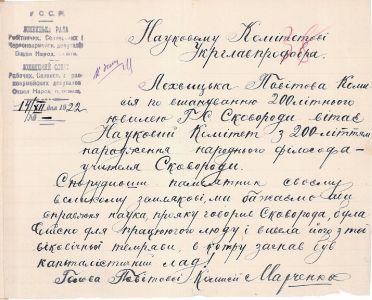 У С.С.Р.
ЛОХВИЦЬКА РАДА
Робітничих, Селянських і
Червоноармійск. депутатів
Отдел Народ.
ЛОХВИЦКИЙ СОВЕТ
Рабочих, Селянск. и
армейских депутатов
Отдел Народ.
14/XII дня 1922
№
Науковому Комітетові
Укрглавпрофобра.
Лохвицька Повітова Комі
сія по вшануванню 200літнього
ювілею Г.С. Сковороди вітає
Науковий Комітет з 200-літтям
народження народного філософа-
учителя Сковороди.
Спорудивши памятник своєму
великому землякові, ми бажаємо щоб
справжня наука, про яку говорив Сковорода, була
дійсно для працюючого люду і вивела його з тої
віковічньої темряви, в котру загнав був
капіталістичний лад!
Голова Повітової Комісії Марченко